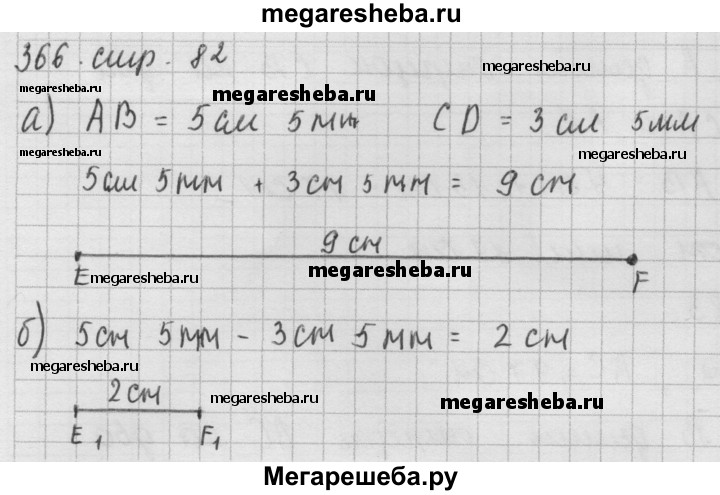 megaresheba.ru
366. стр. 82
megaresheba.ru
megaresheba.ru
megaresheba.ru
а) AB = 5 см 5 мм CD = 3 см 5 мм
megaresheba.ru
megaresheba.ru
5 см 5 мм + 3 см 5 мм = 9 см
9 см
E megaresheba.ru megaresheba.ru F
б) 5 см 5 мм - 3 см 5 мм = 2 см
megaresheba.ru
megaresheba.ru
2 см
megaresheba.ru
megaresheba.ru
E1 F1
Мегарешеба.ру